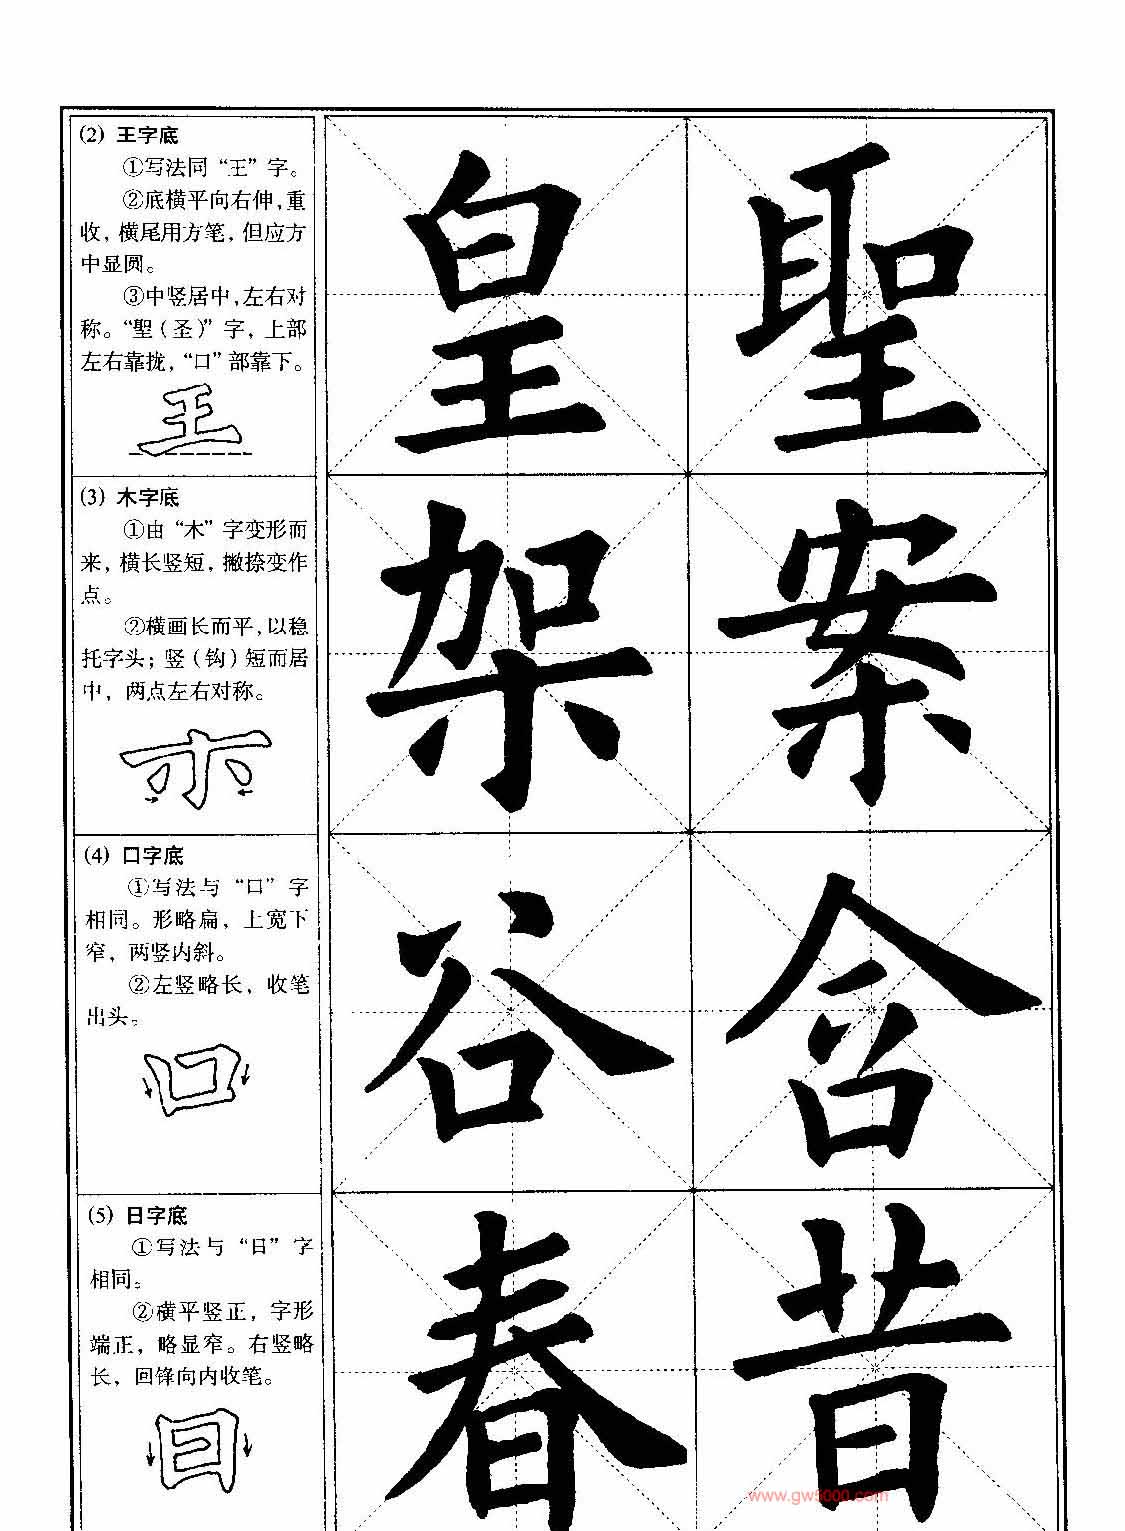 (2) 王字底
①写法同“王”字。
②底横平向右伸，重
收，横尾用方笔，但应方
中显圆。
③中竖居中，左右对
称。“聖（圣）”字，上部
左右靠拢，“口”部靠下。
王
皇 聖
(3) 木字底
①由“木”字变形而
来，横长竖短，撇捺变作
点。
②横画长而平，以稳
托字头；竖（钩）短而居
中，两点左右对称。
木
架 案
(4) 口字底
①写法与“口”字
相同。形略扁，上宽下
窄，两竖内斜。
②左竖略长，收笔
出头。
口
谷 含
(5) 日字底
①写法与“日”字
相同。
②横平竖正，字形
端正，略显窄。右竖略
长，回锋向内收笔。
日
春 昔
www.gw5000.com